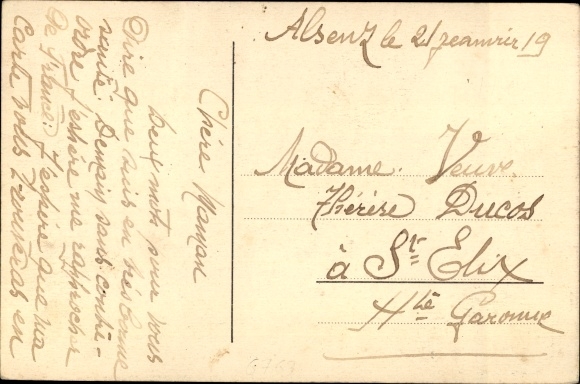 Alsenz le 21 jeanvier 19
Chère Maman
Deux mots pour vous
Dire que suis en très bonne
santé. Demain sans contre-
ordre j'espère me rapprocher
De France. J'espère que ma
Carte vous trouveras en
Madame Veuve
Thérèse Ducos
à St Elix
Hte Garonne